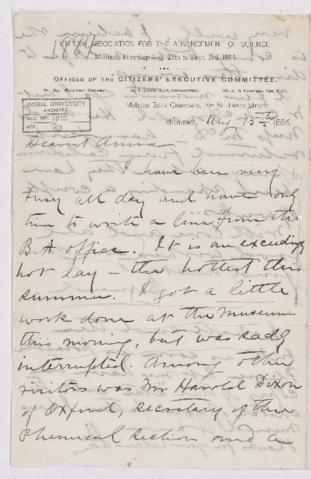 BRITISH ASSOCIATION FOR THE ADVANCEMENT OF SCIENCE
Montreal Meeting, Aug. 27th to Sept. 3rd, 1884.
OFFICES OF THE CITIZENS' EXECUTIVE COMMITTEE.
Molsons Bank Chambers, St. James Street
McGILL UNIVERSITY
ARCHIVES
ACC. NO. 1070
REF.
Montreal, Aug 13th 1884.
Dearest Anna
I have been very
busy all day and have only
time to write a line from the
B.A. office. It is an exceeding
hot day – the hottest this
summer. I got a little
work done at the Museum
this morning, but was sadly
interrupted. Among other
visitors was Mr Harold Dixon
of Oxford, secretary of the
Chemical section and a